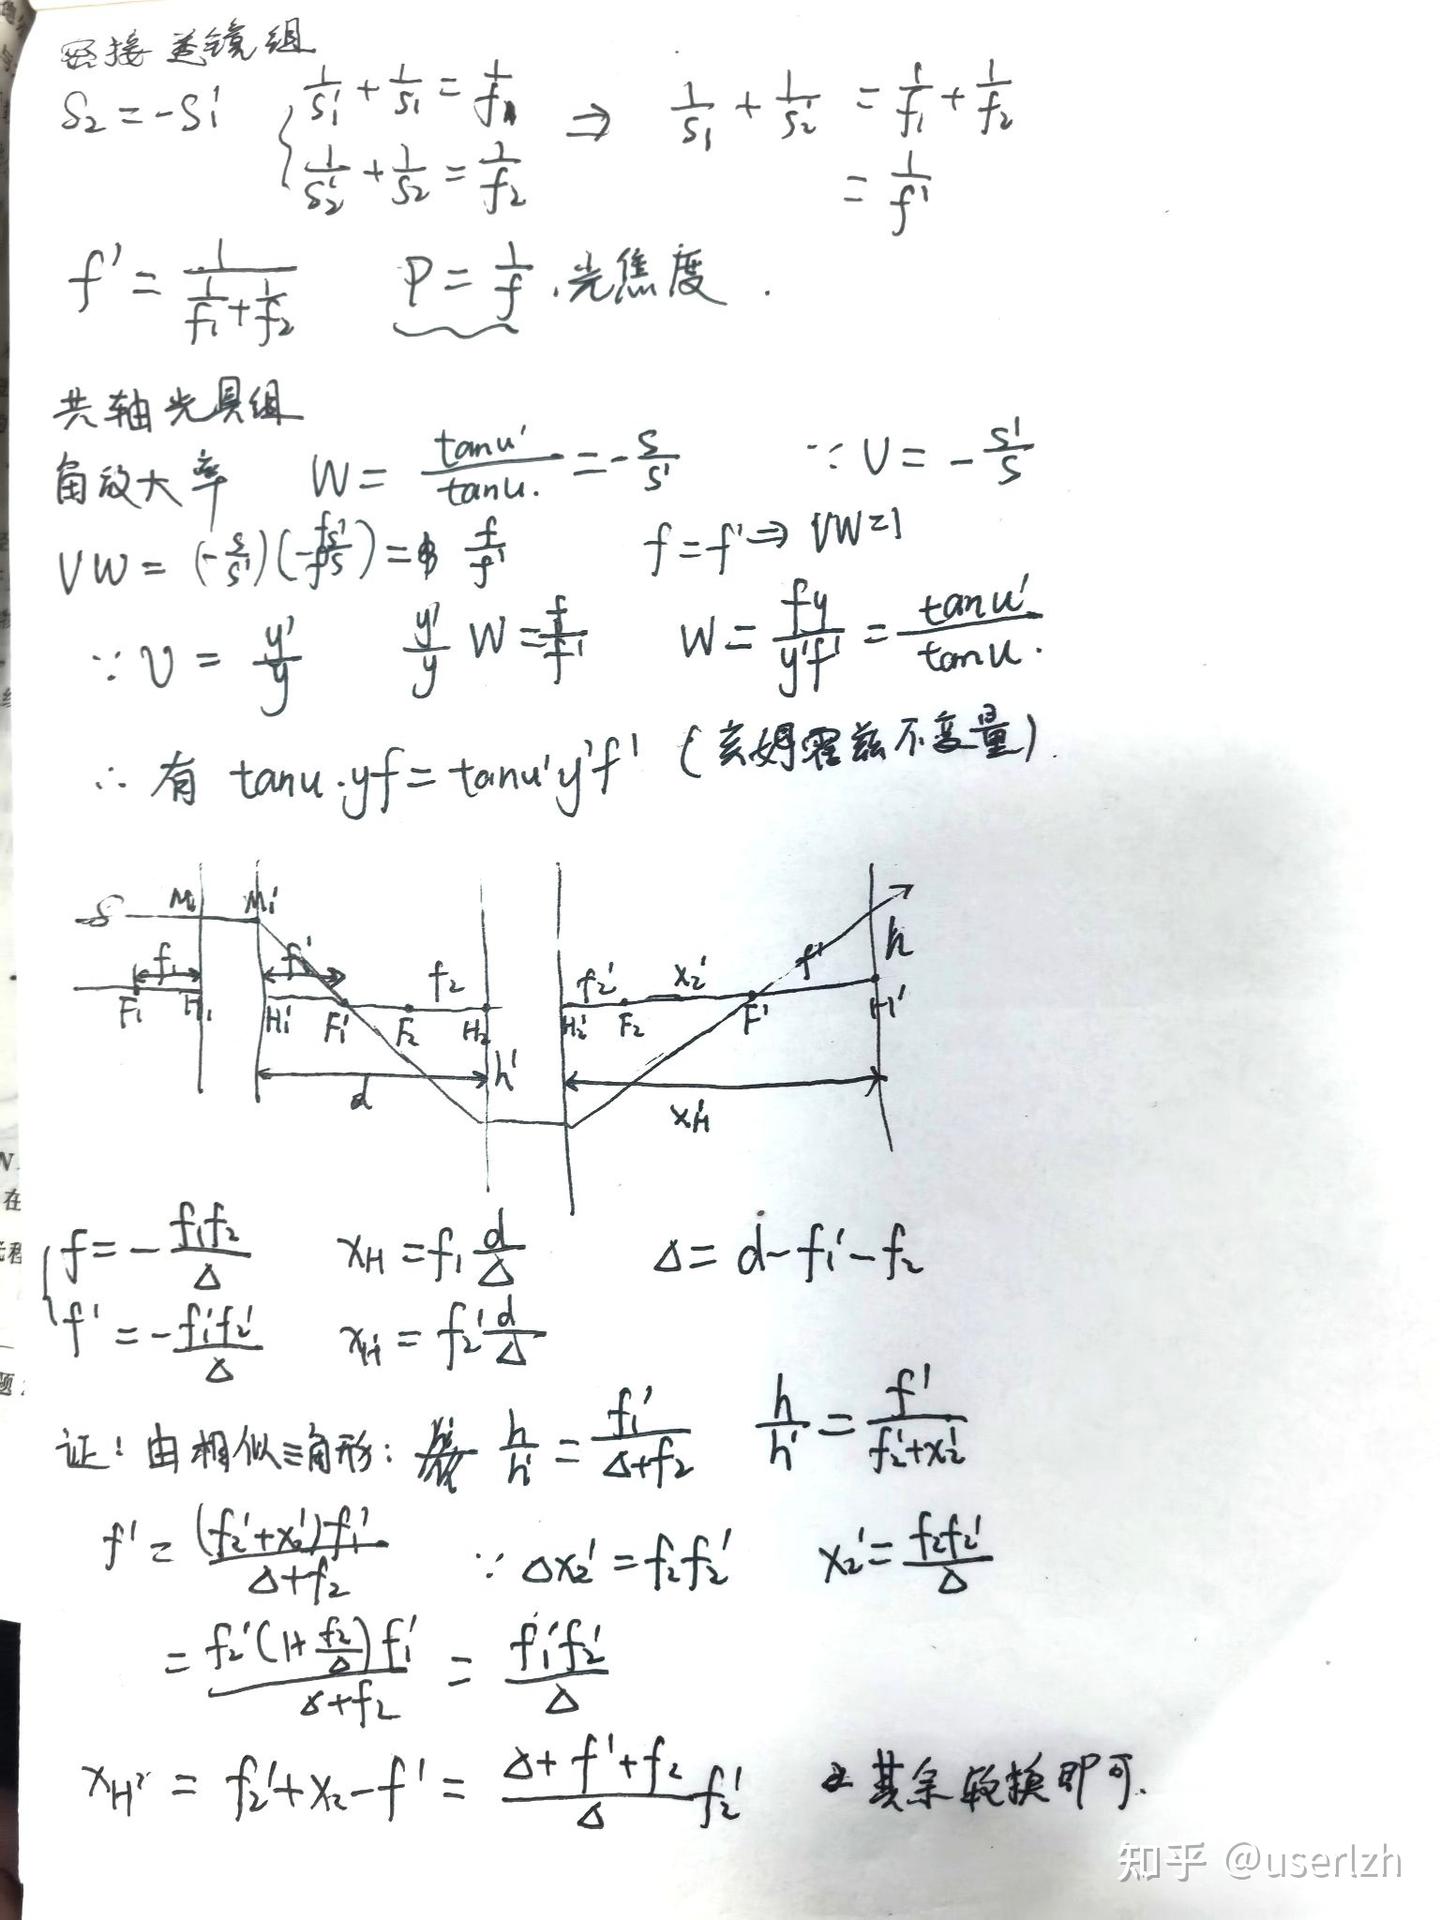 密接透镜组
S₂ = -S₁' { 1/S₁' + 1/S₁ = 1/f₁ ⇒ 1/S₁ + 1/S₂' = 1/f₁ + 1/f₂
1/S₂' + 1/S₂ = 1/f₂ = 1/f'
f' = 1/(1/f₁ + 1/f₂) P = 1/f . 光焦度 .
共轴光具组
角放大率 W = tanu'/tanu. = -S/S' ∵ V = -S'/S
VW = (-S/S')(-fS'/f'S) = f/f' f = f' ⇒ VW=1
∵ V = y'/y y'/y W = f/f' W = fy/y'f' = tanu'/tanu.
∴ 有 tanu·yf = tanu'y'f' (亥姆霍兹不变量).
S M₁ M₁' h
f₁ f₁' f₂ f₂' x₂' f'
F₁ H₁ H₁' F₁' F₂ H₂ H₂' F₂ F' H'
d h' xH'
{ f = -f₁f₂/Δ xH = f₁ d/Δ Δ = d - f₁' - f₂
f' = -f₁'f₂'/Δ xH' = f₂' d/Δ
证: 由相似三角形: h/h' = f₁'/(Δ+f₂) h/h' = f'/(f₂'+x₂')
f' = (f₂'+x₂')f₁'/(Δ+f₂) ∵ Δx₂' = f₂f₂' x₂' = f₂f₂'/Δ
= f₂'(1+f₂/Δ)f₁'/(Δ+f₂) = f₁'f₂'/Δ
xH' = f₂'+x₂-f' = (Δ+f'+f₂)/Δ f₂' 其余轮换即可.
知乎 @userlzh